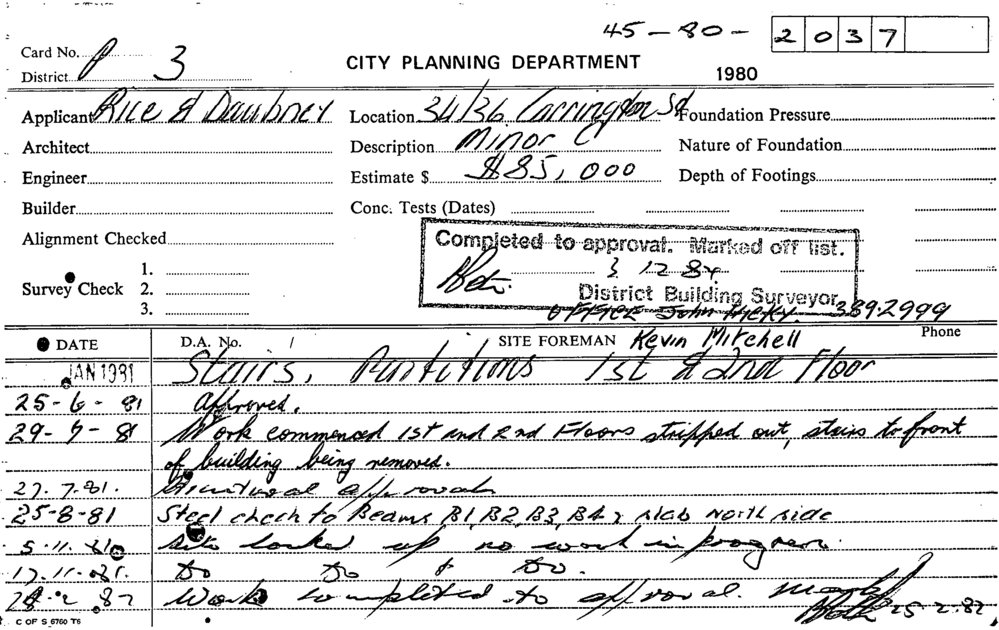 45-80- 2037
Card No. P
District 3
CITY PLANNING DEPARTMENT
1980
Applicant Rice & Daubney
Location 34/36 Carrington St
Foundation Pressure
Architect
Description Minor C
Nature of Foundation
Engineer
Estimate $ $85,000
Depth of Footings
Builder
Conc. Tests (Dates)
Alignment Checked
Completed to approval. Marked off list.
Survey Check 1.
2.
3.
12 84
District Building Surveyor
OFFICE John 389.2999
DATE
D.A. No. /
SITE FOREMAN Kevin Mitchell
Phone
JAN 1981 Stairs, Partitions 1st & 2nd Floor
25-6-81 Approved.
29-7-81 Work commenced 1st and 2nd Floors stripped out, stairs to front
of building being removed.
27.7.81. Structural approval
25-8-81 Steel check to Beams B1, B2, B3, B4 & slab North side
5.11.81 Site locked up no work in progress.
17.11.81. Do Do & Do.
Work completed to approval.
25.2.82
C OF S 6760 T6